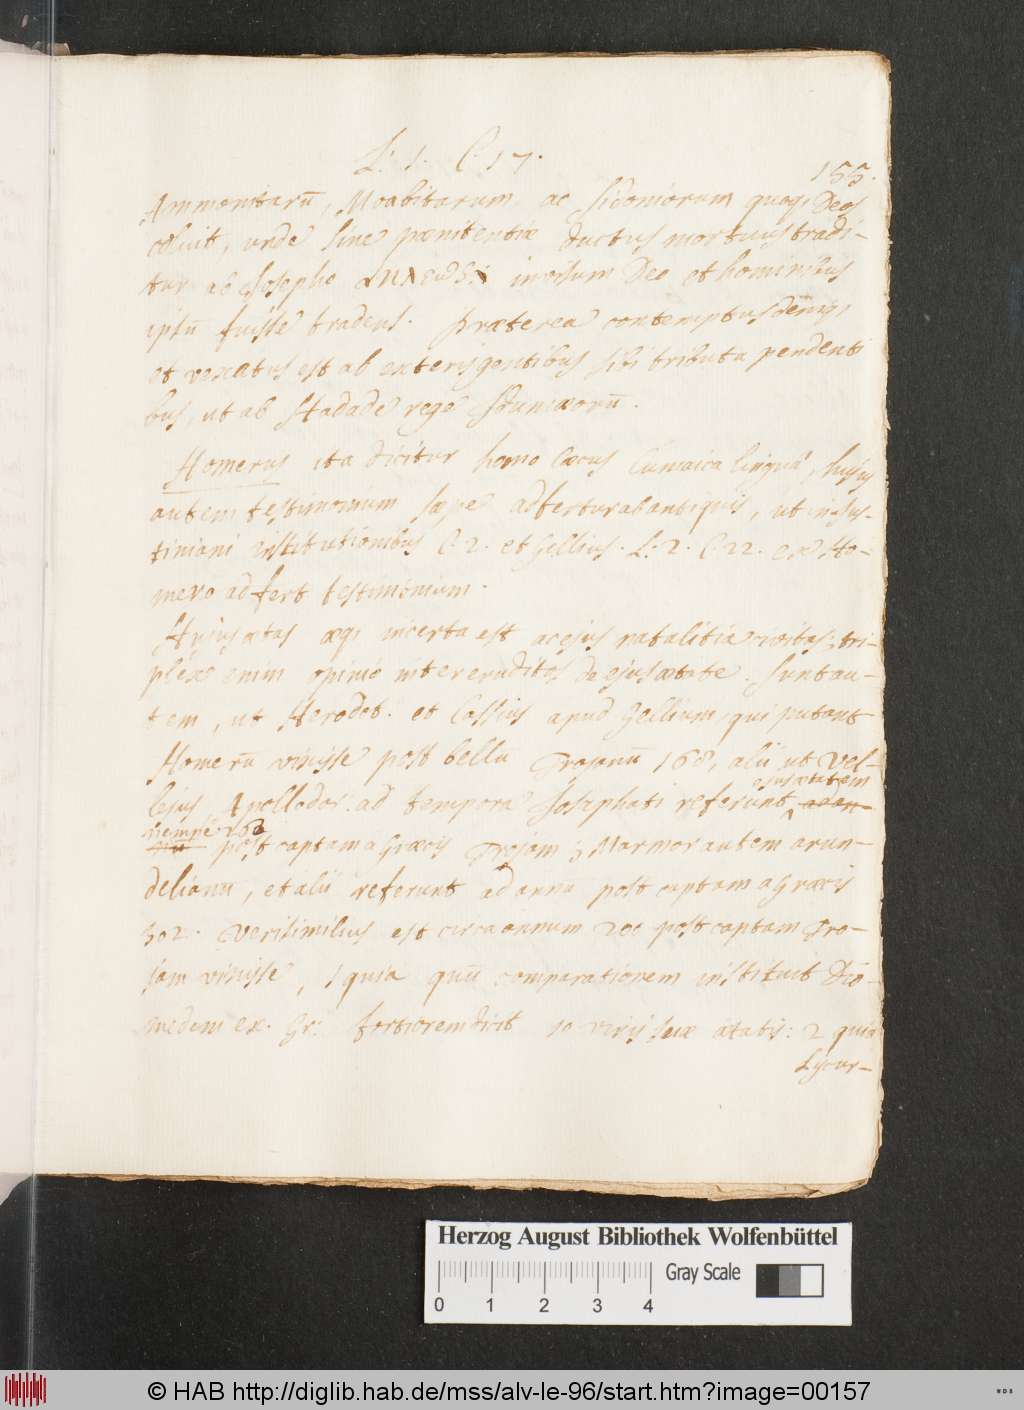 L: 1. C. 17.
155.
Ammonitarū, Moabitarum ac Sidoniorum quoq; Deos
coluit, unde sine pænitentiæ ductus mortuus tradi-
tur ab Josepho invisum Deo et hominibus
ipsū fuisse tradens. Præterea contemptus deniq;
et vexatus est ab exteris gentibus sibi tributa pendenti
bus, ut ab Hadade rege Idumæorū.
Homerus ita dicitur homo Cæcus Cumaica lingua, hujus
autem testimonium sæpe adfertur ab antiquis, ut in Jus-
tiniani institutionibus C. 2. et Gellius. L. 2. C. 22. ex Ho-
mero adfert testimonium.
Hujus ætas æq; incerta est ac ejus natalitia civitas; tri-
plex enim opinio inter eruditos de ejus ætate. Sunt au-
tem, ut Herodot. et Cassius apud Gellium, qui putant
Homerū vixisse post bellū Trojanū 168, alii ut Vel-
ejus ætatem
lejus Apollodor. ad tempora Josaphati referunt
nempe 260
post captam a Græcis Trojam; Marmor autem arun-
delianū, et alii referunt ad annū post captam a Græcis
302. Verisimilius est circa annum 200 post captam Tro-
jam vixisse, 1 quia quū comparationem instituit Dio-
medem ex. Gr: fortiorem dicit 10 viris suæ ætatis: 2 quia
Lycur-
Herzog August Bibliothek Wolfenbüttel
Gray Scale
0 1 2 3 4
© HAB http://diglib.hab.de/mss/alv-le-96/start.htm?image=00157